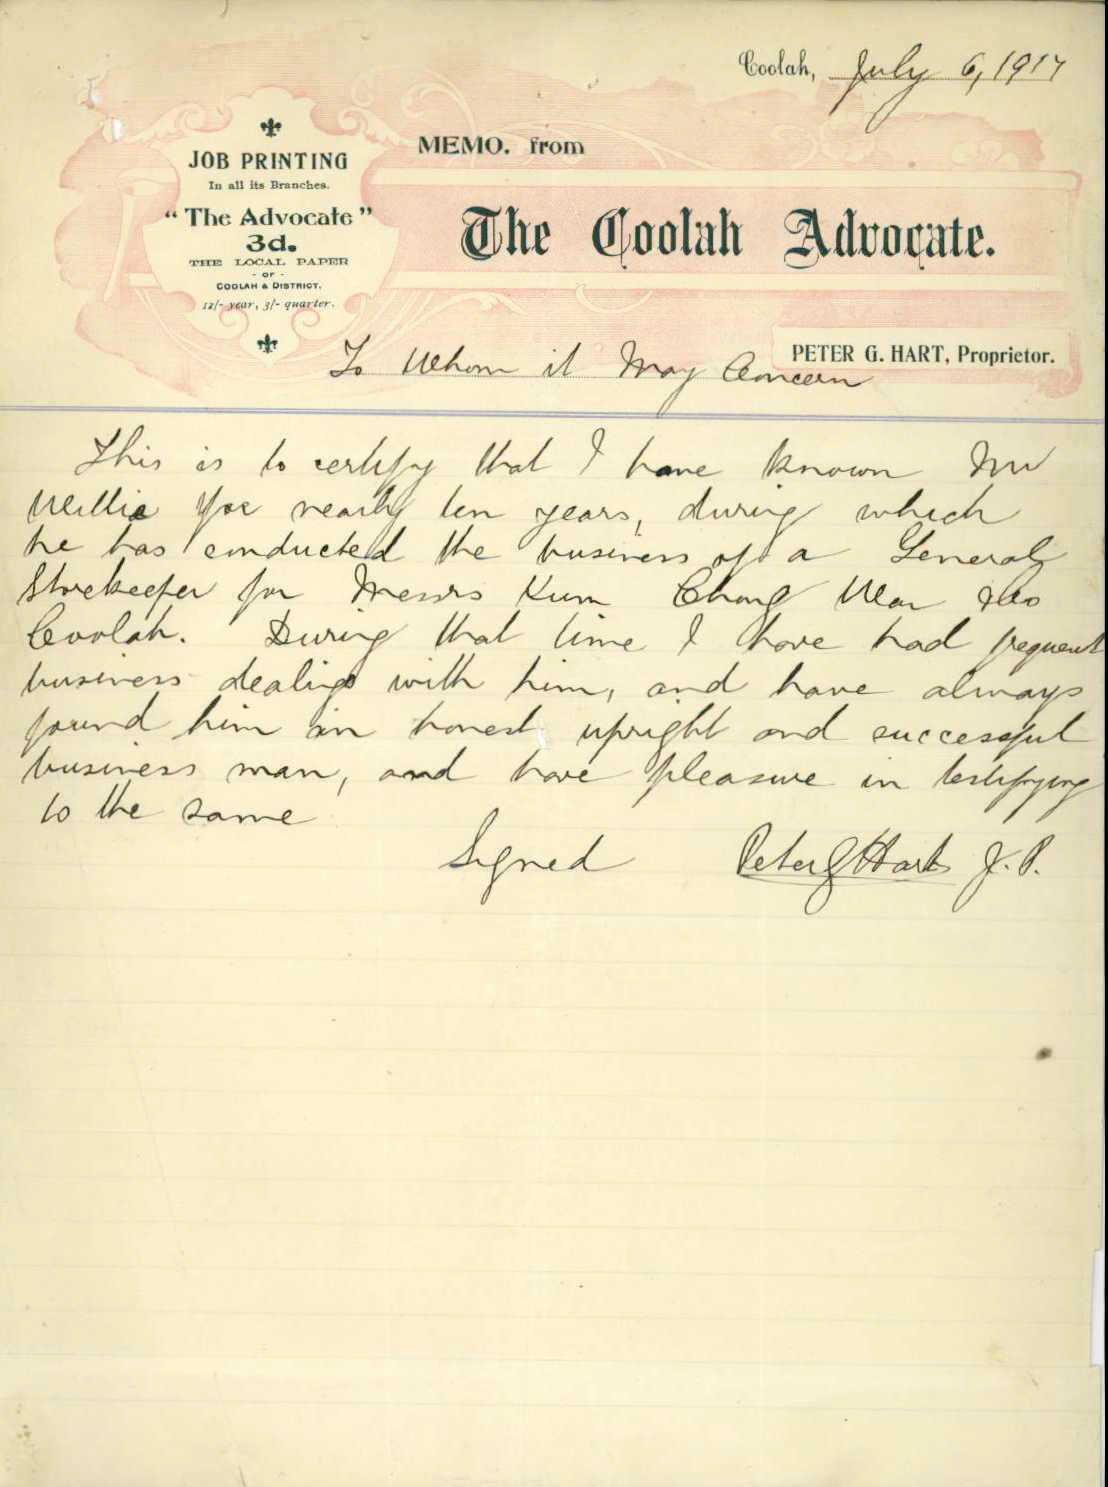 Coolah, July 6, 1917
JOB PRINTING
In all its Branches.
"The Advocate"
3d.
THE LOCAL PAPER
- OF -
COOLAH & DISTRICT.
12/- year, 3/- quarter.
MEMO. from
The Coolah Advocate.
PETER G. HART, Proprietor.
To Whom it May Concern
This is to certify that I have known Mr
Willie for nearly ten years, during which
he has conducted the business of a General
Storekeeper for Messrs Kum Chong War &Co
Coolah. During that time I have had frequent
business dealings with him, and have always
found him an honest upright and successful
business man, and have pleasure in testifying
to the same
Signed Peter G Hart J. P.